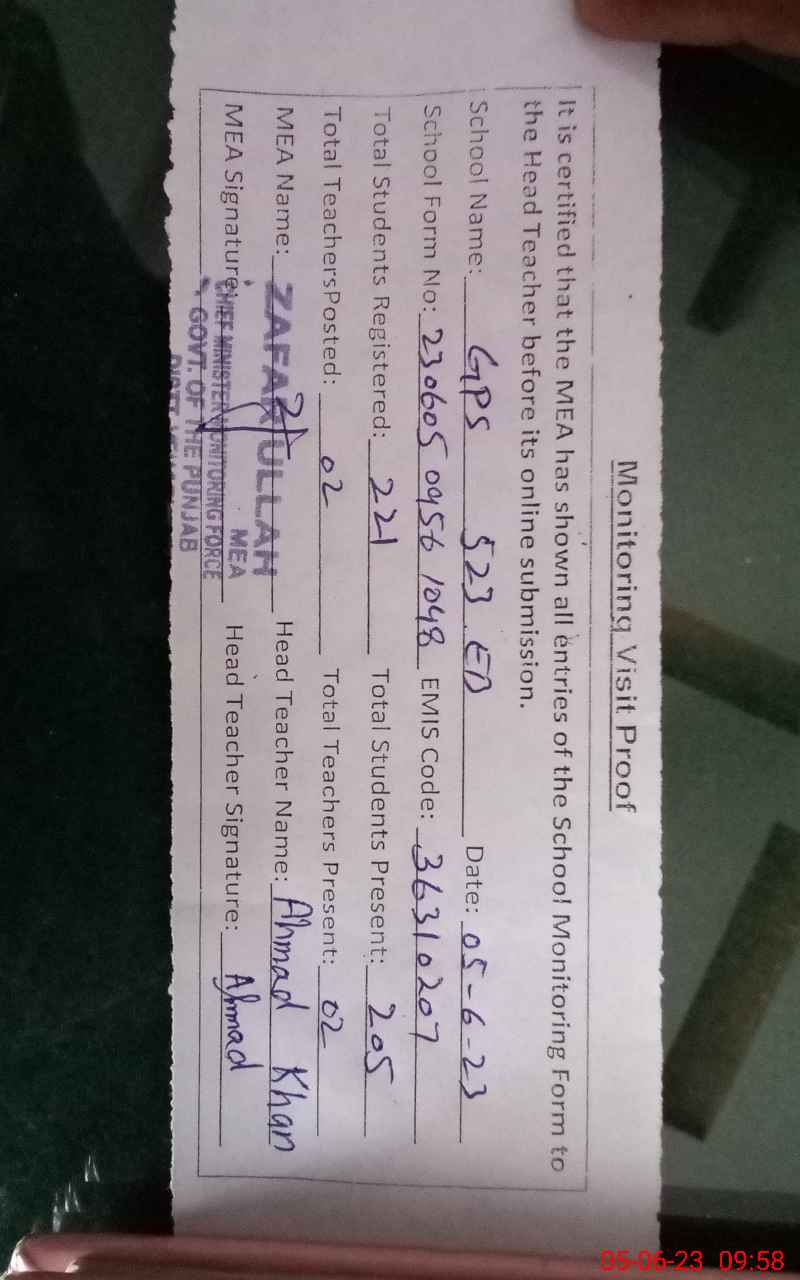 Monitoring Visit Proof
It is certified that the MEA has shown all entries of the School Monitoring Form to
the Head Teacher before its online submission.
School Name: GPS 523 EB Date: 05-6-23
School Form No: 230605 0956 1048 EMIS Code: 36310207
Total Students Registered: 221 Total Students Present: 205
Total TeachersPosted: 02 Total Teachers Present: 02
MEA Name: ZAFAR ULLAH Head Teacher Name: Ahmad Khan
MEA Signature: MEA Head Teacher Signature: Ahmad
CHIEF MINISTER MONITORING FORCE
GOVT. OF THE PUNJAB
DISTT.
05-06-23 09:58